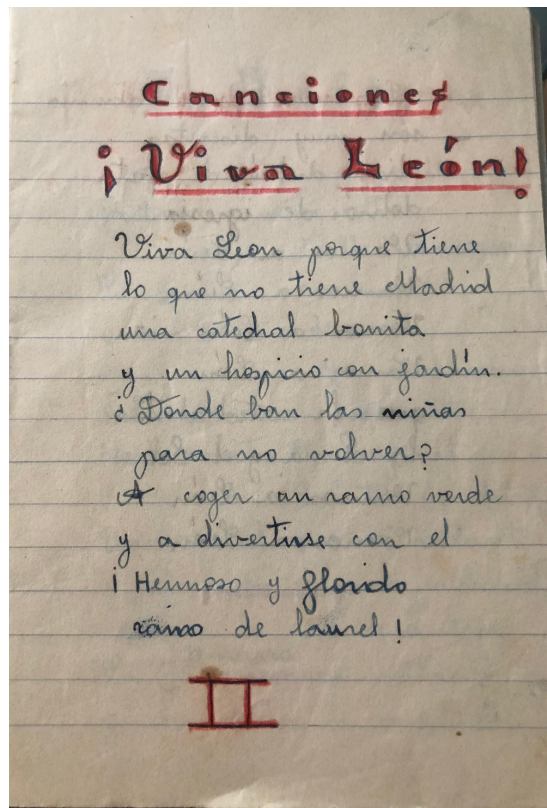 Canciones
¡Viva León!
Viva Leon porque tiene
lo que no tiene Madrid
una catedral bonita
y un hospicio con jardín.
¿Donde ban las niñas
para no volver?
A coger un ramo verde
y a divertirse con el
¡Hermoso y florido
ramo de laurel!
II